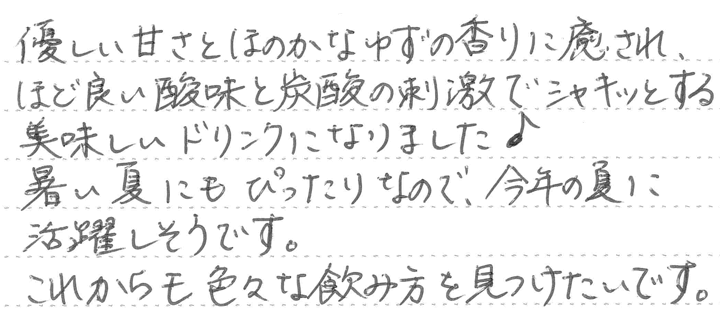 優しい甘さとほのかなゆずの香りに癒され、
ほど良い酸味と炭酸の刺激でシャキッとする
美味しいドリンクになりました♪
暑い夏にもぴったりなので、今年の夏に
活躍しそうです。
これからも色々な飲み方を見つけたいです。